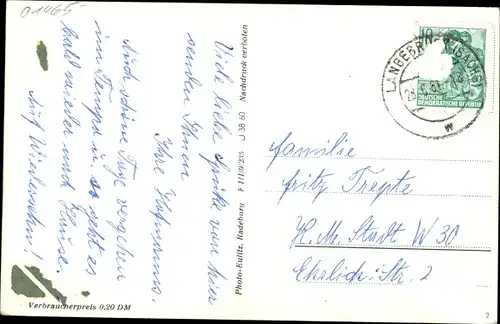 D 1465
Viele liebe Grüße von hier
senden Ihnen
Ihre Hofmanns.
Auch schöne Tage vergehen
im Fluge u. so geht es
bald wieder nach Hause.
Auf Wiedersehn!
Verbraucherpreis 0,20 DM
Photo-Eulitz, Radeburg F 1119/235 J 38 60 Nachdruck verboten
10
DEUTSCHE
DEMOKRATISCHE REPUBLIK
LANGEBR
(SACHS)
w
Familie
Fritz Trepte
K. M. Stadt W 30
Ehrlich-Str. 2
2